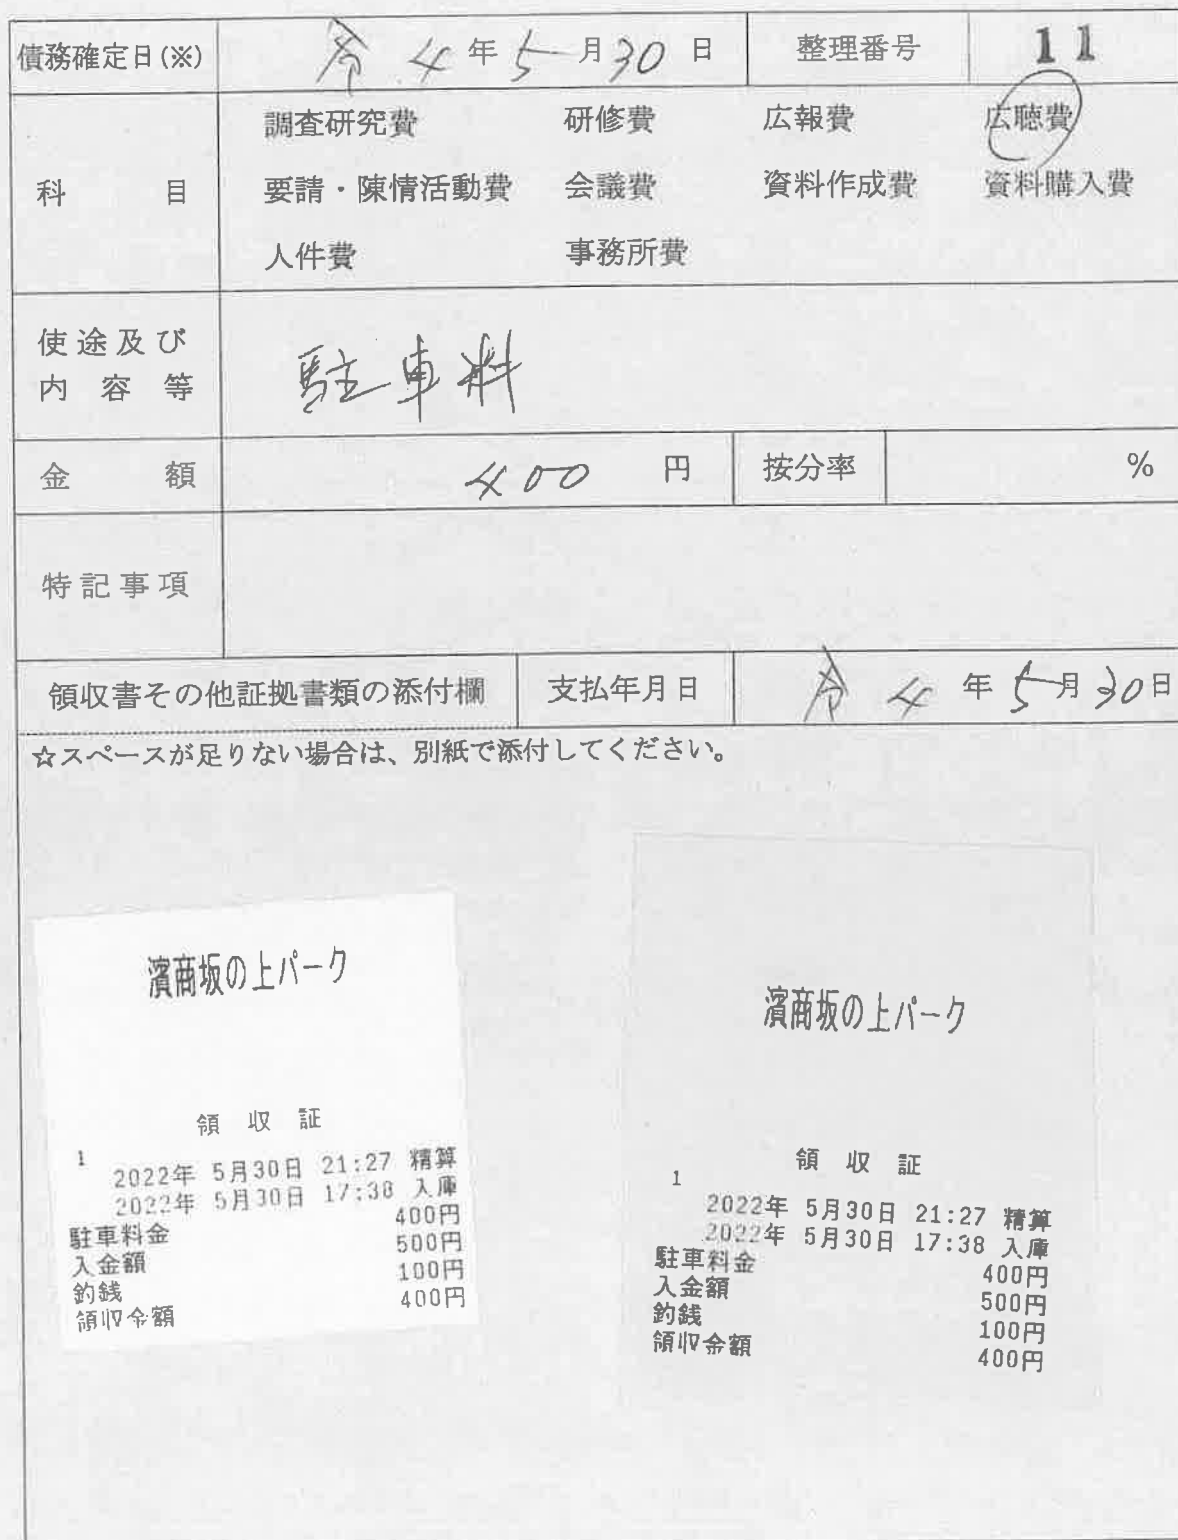 債務確定日(※) 令 4 年 5 月 30 日 整理番号 11
科 目 調査研究費 研修費 広報費 広聴費
要請・陳情活動費 会議費 資料作成費 資料購入費
人件費 事務所費
使途及び内容等 駐車料
金額 400 円 按分率 %
特記事項
領収書その他証拠書類の添付欄 支払年月日 令 4 年 5 月 30 日
☆スペースが足りない場合は、別紙で添付してください。
濱商坂の上パーク
領 収 証
1
2022年 5月30日 21:27 精算
2022年 5月30日 17:38 入庫
駐車料金 400円
入金額 500円
釣銭 100円
領収金額 400円
濱商坂の上パーク
領 収 証
1
2022年 5月30日 21:27 精算
2022年 5月30日 17:38 入庫
駐車料金 400円
入金額 500円
釣銭 100円
領収金額 400円